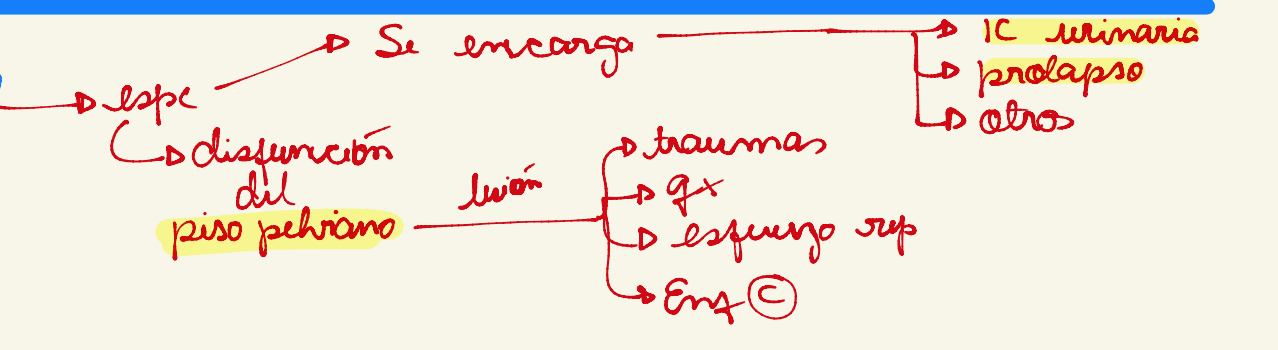 Se encarga
IC urinaria
prolapso
otros
espc
disfunción
del
piso pelviano
lesión
traumas
qx
esfuerzo rep
Enf C